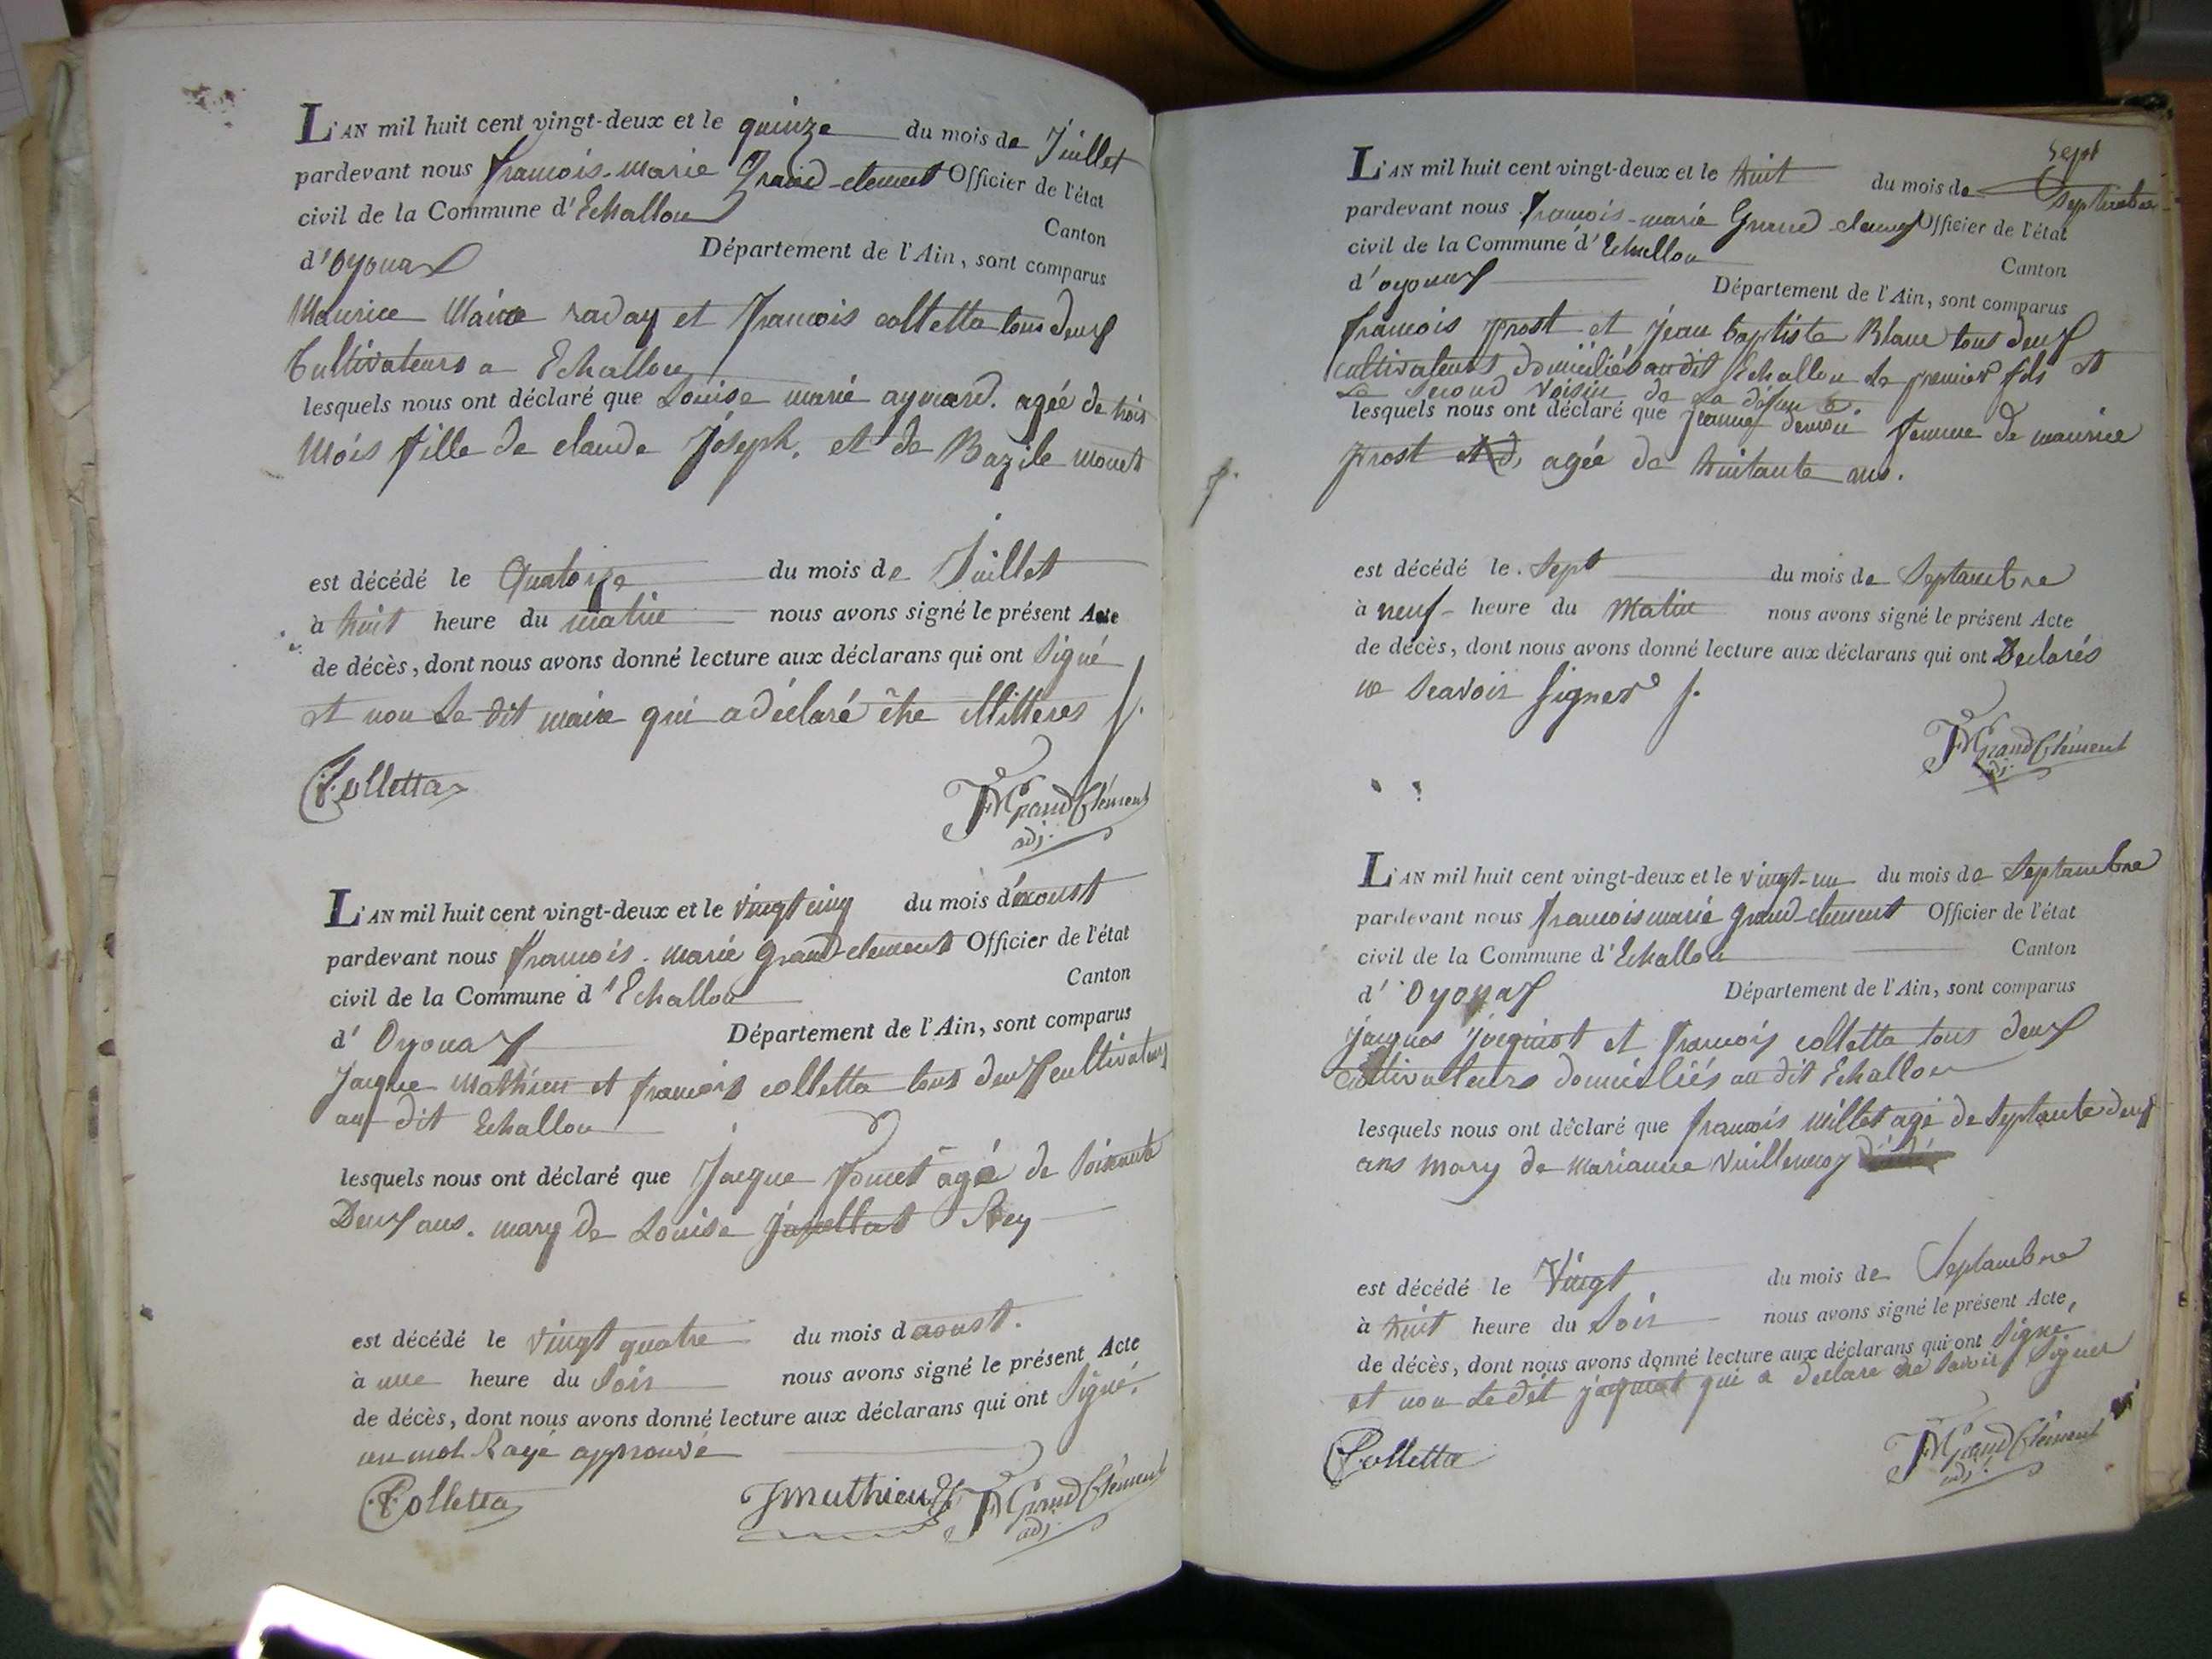 L'AN mil huit cent vingt-deux et le quinze du mois de Juillet
pardevant nous francois-marie Grand-clement Officier de l'état
civil de la Commune d'Echallon
Canton
d'Oyonax Département de l'Ain, sont comparus
Maurice Maire raday et francois colletta tous deux
Cultivateurs a Echallon
lesquels nous ont déclaré que Louise marie aymard. agée de trois
Mois fille de claude Joseph. et de Bazile monet
est décédé le Quatorze du mois de Juillet
à huit heure du matin nous avons signé le présent Acte
de décès, dont nous avons donné lecture aux déclarans qui ont Signé
et non le dit maire qui a déclaré être illitteres
F. Colletta
FM GrandClément
adj.
L'AN mil huit cent vingt-deux et le vingt cinq du mois d'aoust
pardevant nous francois. marie grand-clement Officier de l'état
civil de la Commune d'Echallon
Canton
d'Oyonax Département de l'Ain, sont comparus
Jacque Mathieu et francois colletta tous deux cultivateurs
au dit Echallon
lesquels nous ont déclaré que Jacque poncet âgé de Soixante
Deux ans. mary de Louise Rey
est décédé le vingt quatre du mois d aoust.
à une heure du Soir nous avons signé le présent Acte
de décès, dont nous avons donné lecture aux déclarans qui ont Signé.
un mot Rayé approuvé
F. Colletta
J mathieu
FM GrandClément
adj.
Sept
L'AN mil huit cent vingt-deux et le huit du mois de Septembre
pardevant nous francois-marie Grand-clement Officier de l'état
civil de la Commune d'Echallon
Canton
d'oyonax Département de l'Ain, sont comparus
francois prost et jean baptiste Blanc tous deux
cultivateurs domiciliés audit Echallon le premier fils et
Le Second voisin de la défunte.
lesquels nous ont déclaré que Jeanne femme de maurice
prost agée de huitante ans.
est décédé le. Sept du mois de Septambre
à neuf heure du Matin nous avons signé le présent Acte
de décès, dont nous avons donné lecture aux déclarans qui ont Declarés
ne Scavoir Signer
FM GrandClément
adj.
L'AN mil huit cent vingt-deux et le vingt-un du mois de Septambre
pardevant nous francois marie grand-clement Officier de l'état
civil de la Commune d'Echallon
Canton
d'Oyonax Département de l'Ain, sont comparus
jacques jacquiot et francois colletta tous deux
Cultivateurs domiciliés au dit Echallon
lesquels nous ont déclaré que francois millet agé de Septante deux
ans mary de marianne Vuillermoz
est décédé le Vingt du mois de Septambre
à huit heure du Soir nous avons signé le présent Acte,
de décès, dont nous avons donné lecture aux déclarans qui ont Signé
et non Le dit jacquiot qui a declaré ne Savoir Signer
F. Colletta
FM GrandClément
adj.